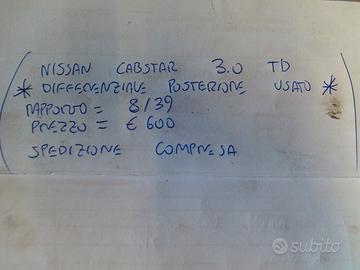 NISSAN CABSTAR 3.0 TD
* DIFFERENZIALE POSTERIORE USATO *
RAPPORTO = 8/39
PREZZO = € 600
SPEDIZIONE COMPRESA
subito